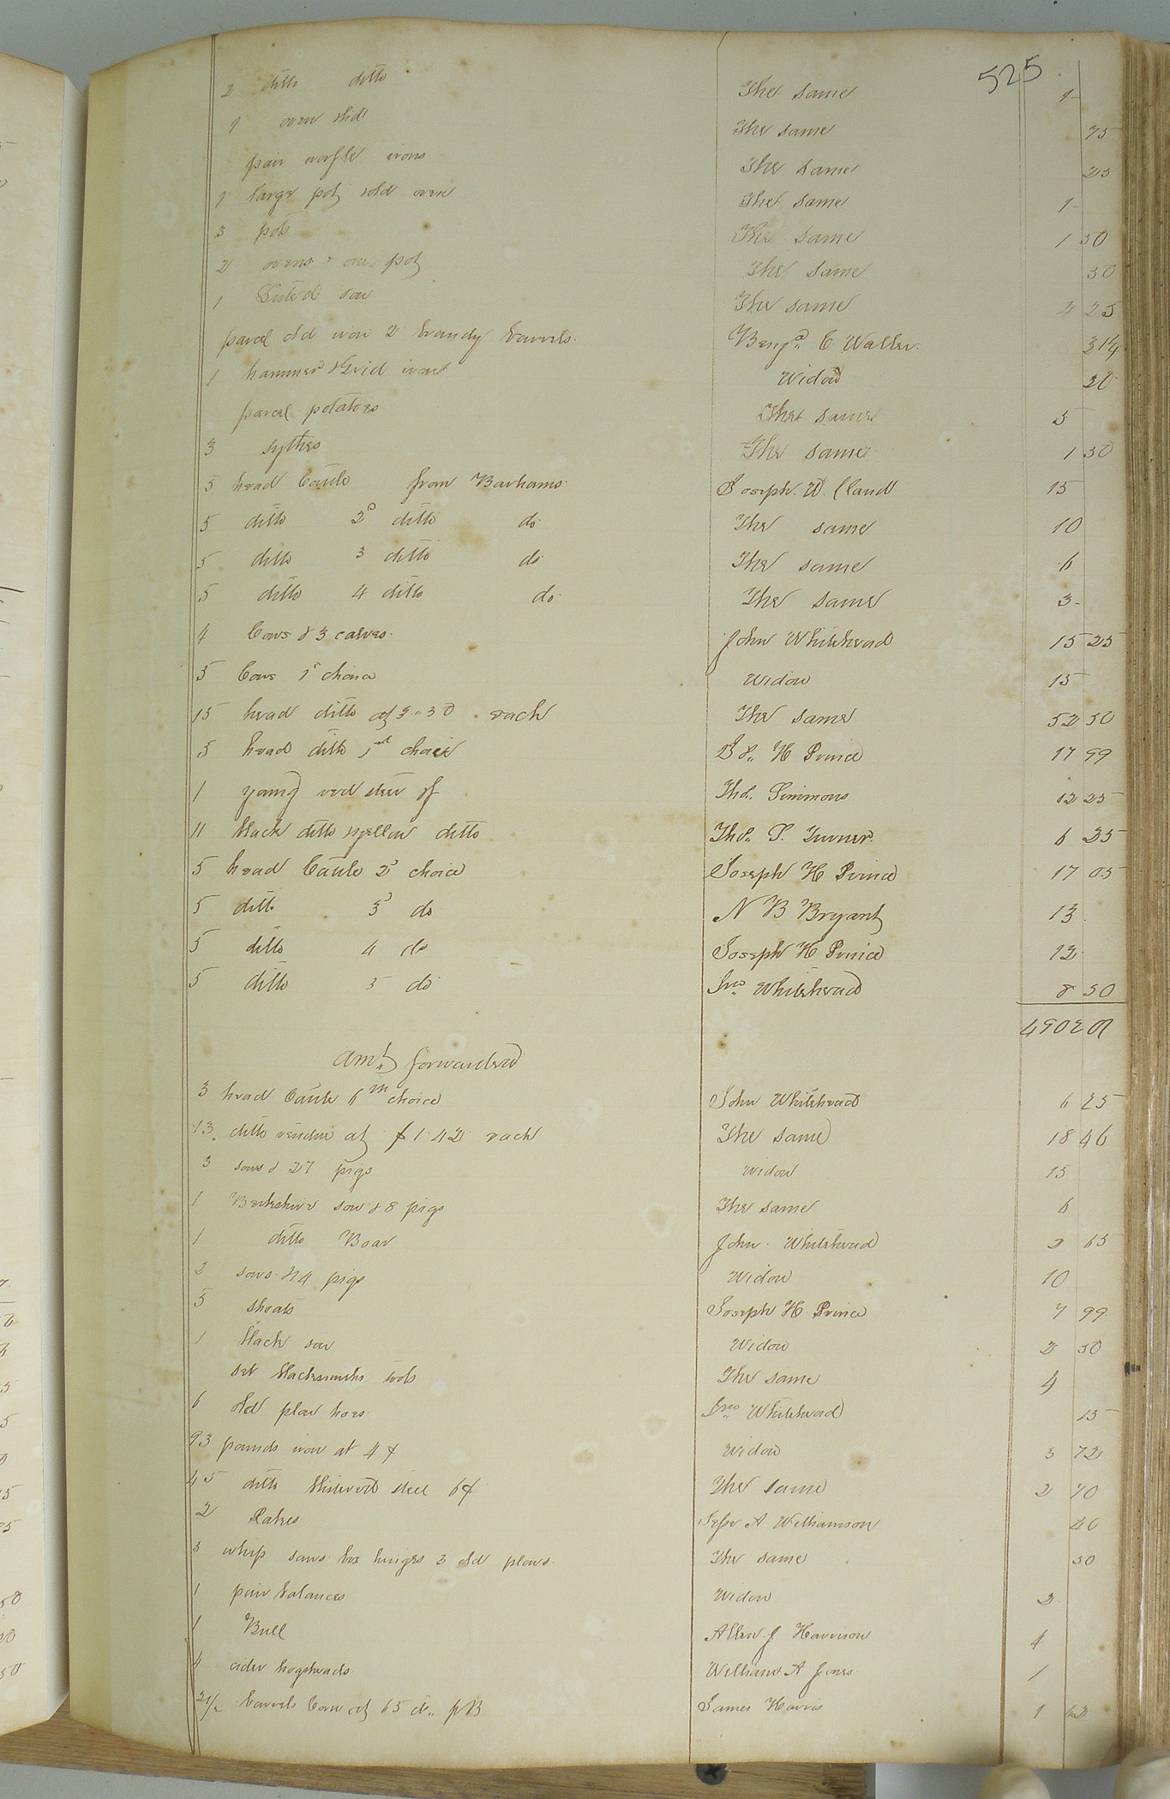 525
2 ditto ditto The same 1
1 oven & lid The same 75
pair waffle irons The same 25
1 large pot old oven The same 1
3 pots The same 1 50
2 ovens & one pot The same 50
1 sow The same 4 25
parcel old iron 2 brandy barrels Benjn. C Waller 31¼
1 hammer & Grid iron Widow 20
parcel potatoes The same 5
3 sythes The same 1 50
5 head Cattle from Barhams Joseph W Claud 15
5 ditto 2d ditto do The same 10
5 ditto 3 ditto do The same 6
5 ditto 4 ditto do The same 3
4 Cows & 3 calves John Whitehead 15 25
5 Cows 1st choice Widow 15
15 head ditto at 3.50 each The same 52 50
5 head ditto 1st choice H Prince 17 99
1 young red steer of Thos. Simmons 12 25
11 black ditto yellow ditto Thos. Turner 6 25
5 head Cattle 2d choice Joseph H Prince 17 05
5 ditto 3d do N B Bryant 13
5 ditto 4 do Joseph H Prince 12
5 ditto 5 do Jno Whitehead 8 50
4902 01
amt. forwarded
3 head Cattle 6th choice John Whitehead 6 25
13 ditto residue at $1.42 each The same 18 46
3 sows & 27 pigs Widow 15
1 Berkshire sow & 8 pigs The same 6
1 ditto Boar John Whitehead 2 65
2 sows & 14 pigs Widow 10
5 shoats Joseph H Prince 7 99
1 black sow Widow 2 50
set blacksmiths tools The same 4
6 old plow hoes Jno Whitehead 15
93 pounds iron at 4¢ Widow 3 72
45 ditto blistered steel 6¢ The same 2 70
2 Rakes A Williamson 40
3 whip saws box hinges 3 old plows The same 50
1 pair balances Widow 2
1 Bull Allen J Harrison 4
4 cider hogsheads William A Jones 1
2½ barrels Corn at 65 cts. pB James Harris 1 62